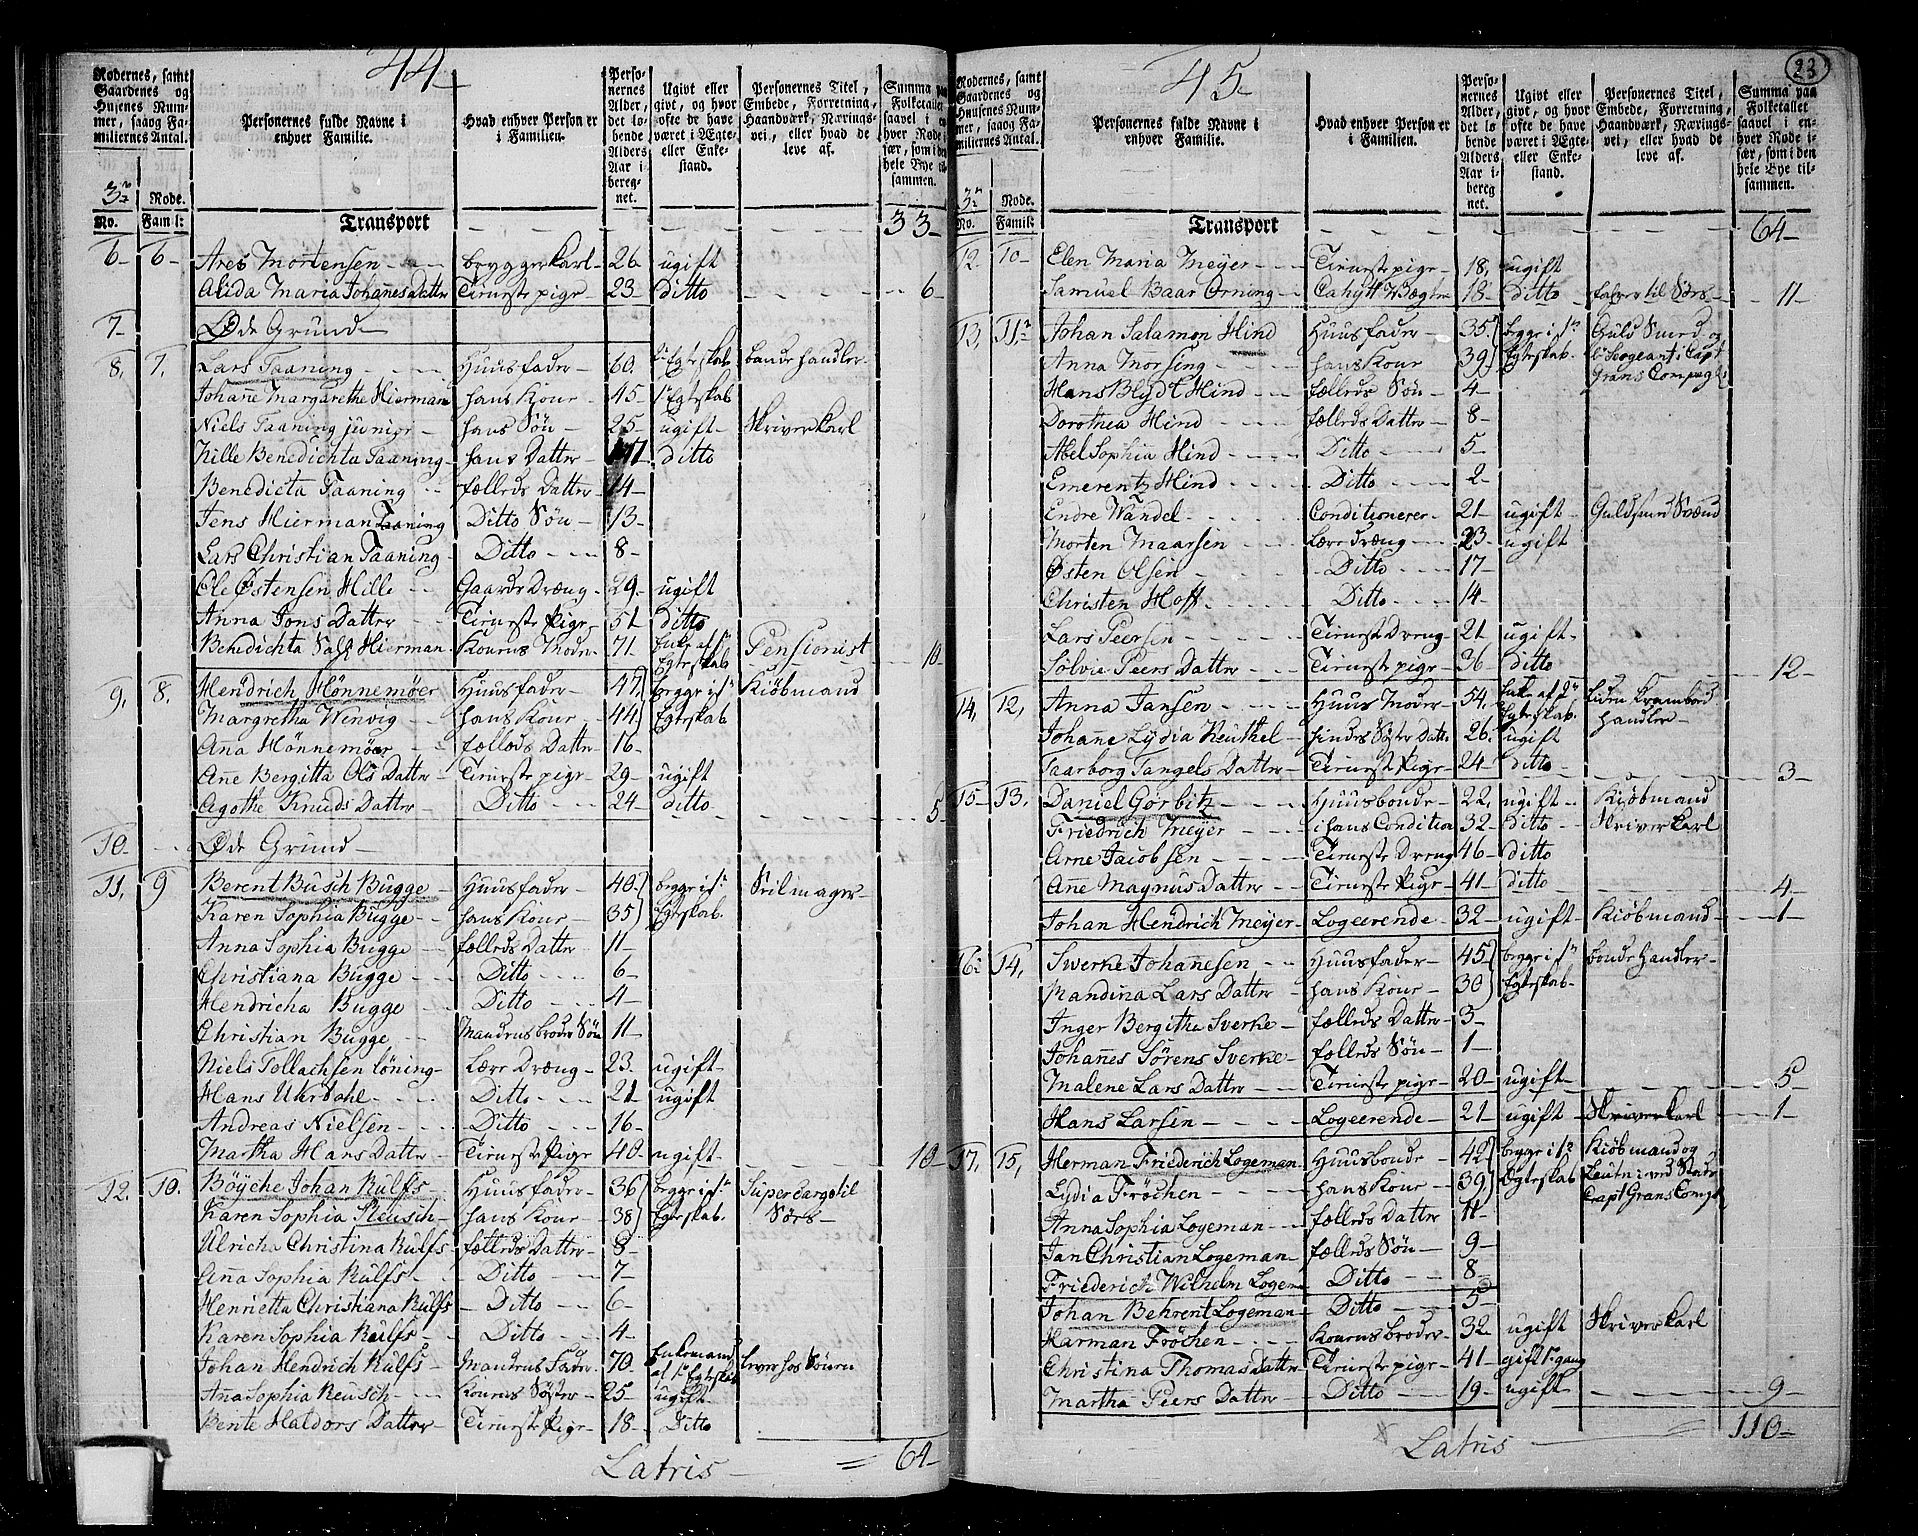 44
Rodernes, samt Gaardenes og Husenes Nummer, saa og Familiernes Antal.
Personernes fulde Navne i enhver Familie.
Hvad enhver Person er i Familien.
Personernes Alder, det løbende Alders Aar iberegnet.
Ugivt eller givt, og hvor ofte de have været i Ægte- eller Enkestand.
Personernes Titel, Embede, Forretning, Haandværk, Næringsvei, eller hvad de leve af.
Summa paa Folketallet saavel i enhver Rode især, som i den hele Bye tilsammen.
3die Rode.
No. Famil:
Transport 33
6 6 Ares Mortensen bryggerkarl 26 ugift
Alida Maria Johannes Datter Tieneste pige 23 Ditto 6
7 Øde Grund
8. 7. Lars Taaning Huusfader 60 2t Egteskab bondehandler
Johanne Margarethe Hierman hans Kone 45 1t Egteskab
Niels Taaning junior hans Søn 25 ugift Skriverkarl
Hille Benedichta Taaning hans Datter 17 ditto
Benedicta Taaning fælleds Datter 14
Jens Hierman Taaning Ditto Søn 13
Lars Christian Taaning Ditto 8
Ole Østensen Hille Gaards Dræng 29 ugift
Anna Jons Datter Tieneste Pige 51 ditto
Benedichta Hierman Konens Moder 71 Enke af 1t Egteskab Pensionist 10
9. 8. Hendrich Hönnemöer Huusfader 47 begge i 1t Kiöbmand
Margretha Wenvig hans Kone 44 Egteskab
Anna Hönnemöer fælleds Datter 16
Ane Bergitta Ols Datter Tieneste pige 29 ugift
Agothe Knuds Datter Ditto 24 ditto 5
10 Øde Grund
11. 9 Berent Busch Bugge Huusfader 40 begge i 1t Seilmager
Karen Sophia Bugge hans Kone 35 Egteskab
Anna Sophia Bugge fælleds Datter 11
Christiana Bugge Ditto 6
Hendricha Bugge Ditto 4
Christian Bugge Mandens broder Søn 11
Niels Tollachsen löning Lære Dræng 23 ugift
Hans Uhrdahl Ditto 21 ugift
Andreas Nielsen Ditto 16
Martha Hans Datter Tieneste Pige 40 ugift 10
12. 10. Böyche Johan Rulfs Huusfader 36 begge i 1t Supercargo til
Karen Sophia Reusch hans Kone 38 Egteskab Söes
Ulricha Christina Rulfs fælleds Datter 8
Anna Sophia Rulfs Ditto 7
Henrietta Christiana Rulfs Ditto 6
Karen Sophia Rulfs Ditto 4
Johan Hendrich Rulfs Mandens Fader 70 Enkemand af 1t Egteskab lever hos Sönen
Anna Sophia Reusch Konens Söster 25 ugift
Bente Haldors Datter Tieneste Pige 18 Ditto
Latris 64
45
23
Rodernes, samt Gaardenes og Husenes Nummer, saa og Familiernes Antal.
Personernes fulde Navne i enhver Familie.
Hvad enhver Person er i Familien.
Personernes Alder, det løbende Alders Aar iberegnet.
Ugivt eller givt, og hvor ofte de have været i Ægte- eller Enkestand.
Personernes Titel, Embede, Forretning, Haandværk, Næringsvei, eller hvad de leve af.
Summa paa Folketallet saavel i enhver Rode især, som i den hele Bye tilsammen.
3die Rode.
No. Famil:
Transport 64
12 10 Elen Maria Meyer Tieneste pige 18 ugift
Samuel Baar Orning Cahyt Wægter 18 Ditto farer til Söes 11
13, 11 Johan Salamon Hind Huusfader 35 begge i 1t Guld Smed og
Anna Morsing hans Kone 39 Egteskab Sergeant i Capt Grans Compag
Hans Blydt Hind fælleds Søn 4
Dorothea Hind fælleds Datter 8
Abel Sophia Hind Ditto 5
Emerentz Hind Ditto 2
Endre Wandel Conditionerer 21 ugift Guldsmed Svænd
Morten Maarsen Lære Dræng 23 ugift
Østen Olsen Ditto 17
Christen Hoff Ditto 14
Lars Peersen Tieneste Dreng 21 ugift
Sølvie Peers Datter Tieneste pige 36 ditto 12
14, 12, Anna Jansen Huus Moder 54 Enke af 1t Egteskab liden krambod handler
Johanne Lydia Reuthel hindes Søster Datter 26 ugift
Taarborg Tangels Datter Tieneste Pige 24 ditto 3
15 13. Daniel Görbitz Huusbonde 22 ugift Kiöbmand
Friedrich Meyer i hans Condition 32 Ditto Skriverkarl
Arne Jacobsen Tieneste Dreng 46 ditto
Ane Magnus Datter Tieneste Pige 41 ditto 4
Johan Hendrich Meyer Logeerende 32 ugift Kiöbmand 1
16 14, Swerke Johannesen Huusfader 45 begge i 1t bonde Handler
Mandina Lars Datter hans Kone 30 Egteskab
Inger Bergitha Sverke fælleds Datter 3
Johannes Sörens Sverke fælleds Søn 1
Malene Lars Datter Tieneste pige 20 ugift 5
Hans Larsen Logeerende 21 ugift Skriverkarl 1
17, 15, Herman Friederich Logeman Huusbonde 42 begge i 1t Kiöbmand og
Lydia Fröchen hans Kone 39 Egteskab Leutn: ved Stads Capt Grans Comp
Anna Sophia Logeman fælleds Datter 11
Jan Christian Logeman fælleds Søn 9
Friederich Wilhelm Logeman Ditto 8
Johan Behrent Logeman Ditto 5
Harman Fröchen Konens broder 32 ugift Skriverkarl
Christina Thomas Datter Tieneste pige 41 gift 1 gang
Martha Peers Datter Ditto 19 ugift 9
Latris 110